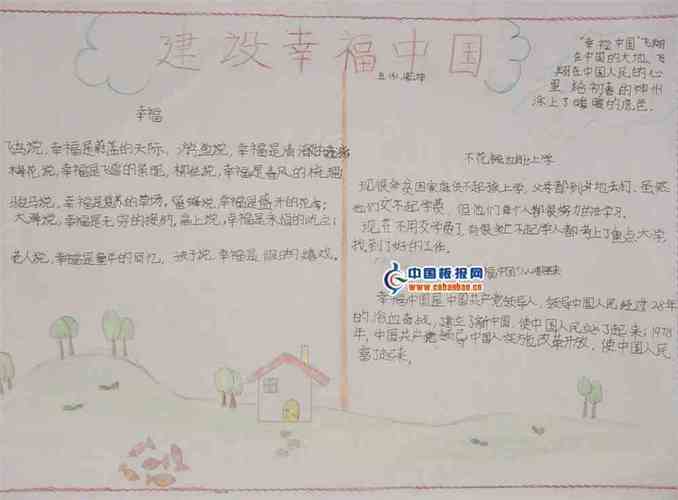 建设幸福中国
五(1)
"幸福中国"飞翔
在中国的大地、飞
翔在中国人民的心
里 给初春的神州
涂上了暖暖的底色.
幸福
飞鸟说,幸福是蔚蓝的天际、游鱼说,幸福是清
梅花说,幸福是飞雪的 柳枝说,幸福是春风的梳理
骏马说,幸福是 的草场,蜜蜂说,幸福是盛开的花
大海说,幸福是无穷的接纳,高山说,幸福是永恒的
老人说,幸福是童年的回忆, 孩子说,幸福是 的嬉戏。
不花钱也能上学
现很多贫困家庭供不起孩上学,父母都到外地去打,虽然
他们交不起学费,但他们每个人都很努力的在学习.
现在不用交学费了, 上不起学人都考上了重点大学
找到了好的工作。
中国板报网
www.cnbanbao.cn
幸福中国是中国共产党领导人、领导中国人民经过28年
的浴血奋战,建立了新中国,使中国人民站了起来;1978
年,中国共产党领导中国人 改革开放,使中国人民
富了起来,